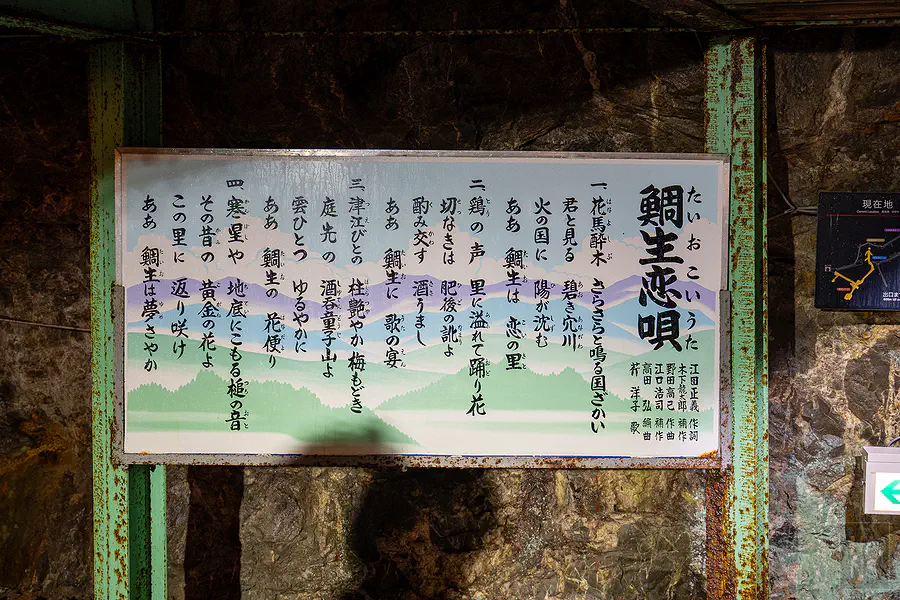 たいおこいうた
鯛生恋唄
江田正義 作詞
木下龍太郎 補作
野田高巳 作曲
江口浩司 補作
高田 弘 編曲
芹 洋子 歌
一、花馬酔木 さらさらと鳴る国ざかい
君と見る 碧き穴川
火の国に 陽が沈む
ああ 鯛生は 恋の里
二、鶏の声 里に溢れて踊り花
切なきは 肥後の訛よ
酌み交す 酒うまし
ああ 鯛生に 歌の宴
三、津江びとの 柱艶やか梅もどき
庭先の 酒呑童子山よ
雲ひとつ ゆるやかに
ああ 鯛生の 花便り
四、寒星や 地底にこもる槌の音
その昔の 黄金の花よ
この里に 返り咲け
ああ 鯛生は夢さやか
現在地
Current Location
出口ま